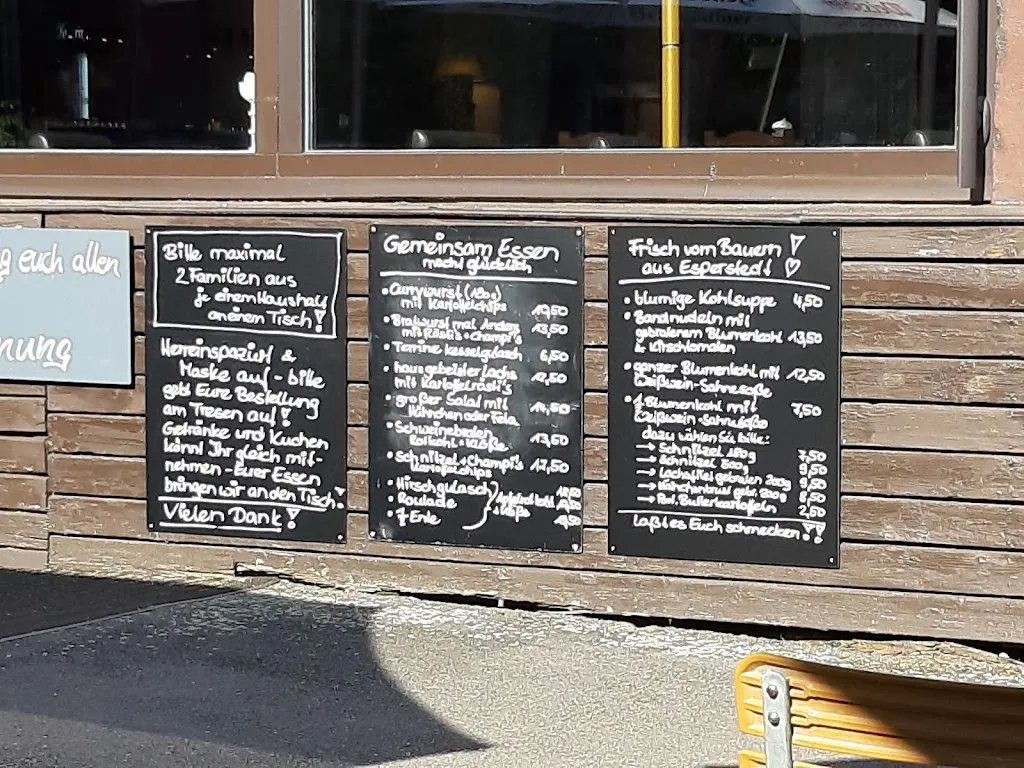 euch allen
nung
Bitte maximal
2 Familien aus
je einem Haushalt
an einem Tisch!
Herreinspaziert &
Maske auf - bitte
gebt Eure Bestellung
am Tresen auf!
Getränke und Kuchen
könnt Ihr gleich mit-
nehmen - Eurer Essen
bringen wir an den Tisch!
Vielen Dank!
Gemeinsam Essen
macht glücklich
• Currywurst (180g)
mit Kartoffelchips 10,50
• Bratwurst mal Anders
mit Rösti's + Champi's 13,50
• Terrine Kesselgulasch 6,50
• hausgebeizter Lachs
mit Kartoffelrösti's 12,50
• großer Salat mit
Hähnchen oder Feta 14,50
• Schweinebraten
Rotkohl + Klöße 13,50
• Schnitzel + Champi's
Kartoffelchips 12,50
• Hirschgulasch
• Roulade
• ½ Ente
Frisch vom Bauern!
aus Esperstedt! ♡
• blumige Kohlsuppe 4,50
• Bandnudeln mit
gebratenem Blumenkohl 13,50
& Kirschtomaten
• ganzer Blumenkohl mit 12,50
Weißwein-Sahnesoße
• ½ Blumenkohl mit 7,50
Weißwein-Sahnesoße
dazu wählen Sie bitte:
→ Schnitzel 180g 7,50
→ Schnitzel 300g 9,50
→ Lachsfilet gebraten 200g 9,50
→ Hähnchenbrust gebr. 200g 8,50
→ Port. Butterkartoffeln 2,50
Laßt es Euch schmecken!!